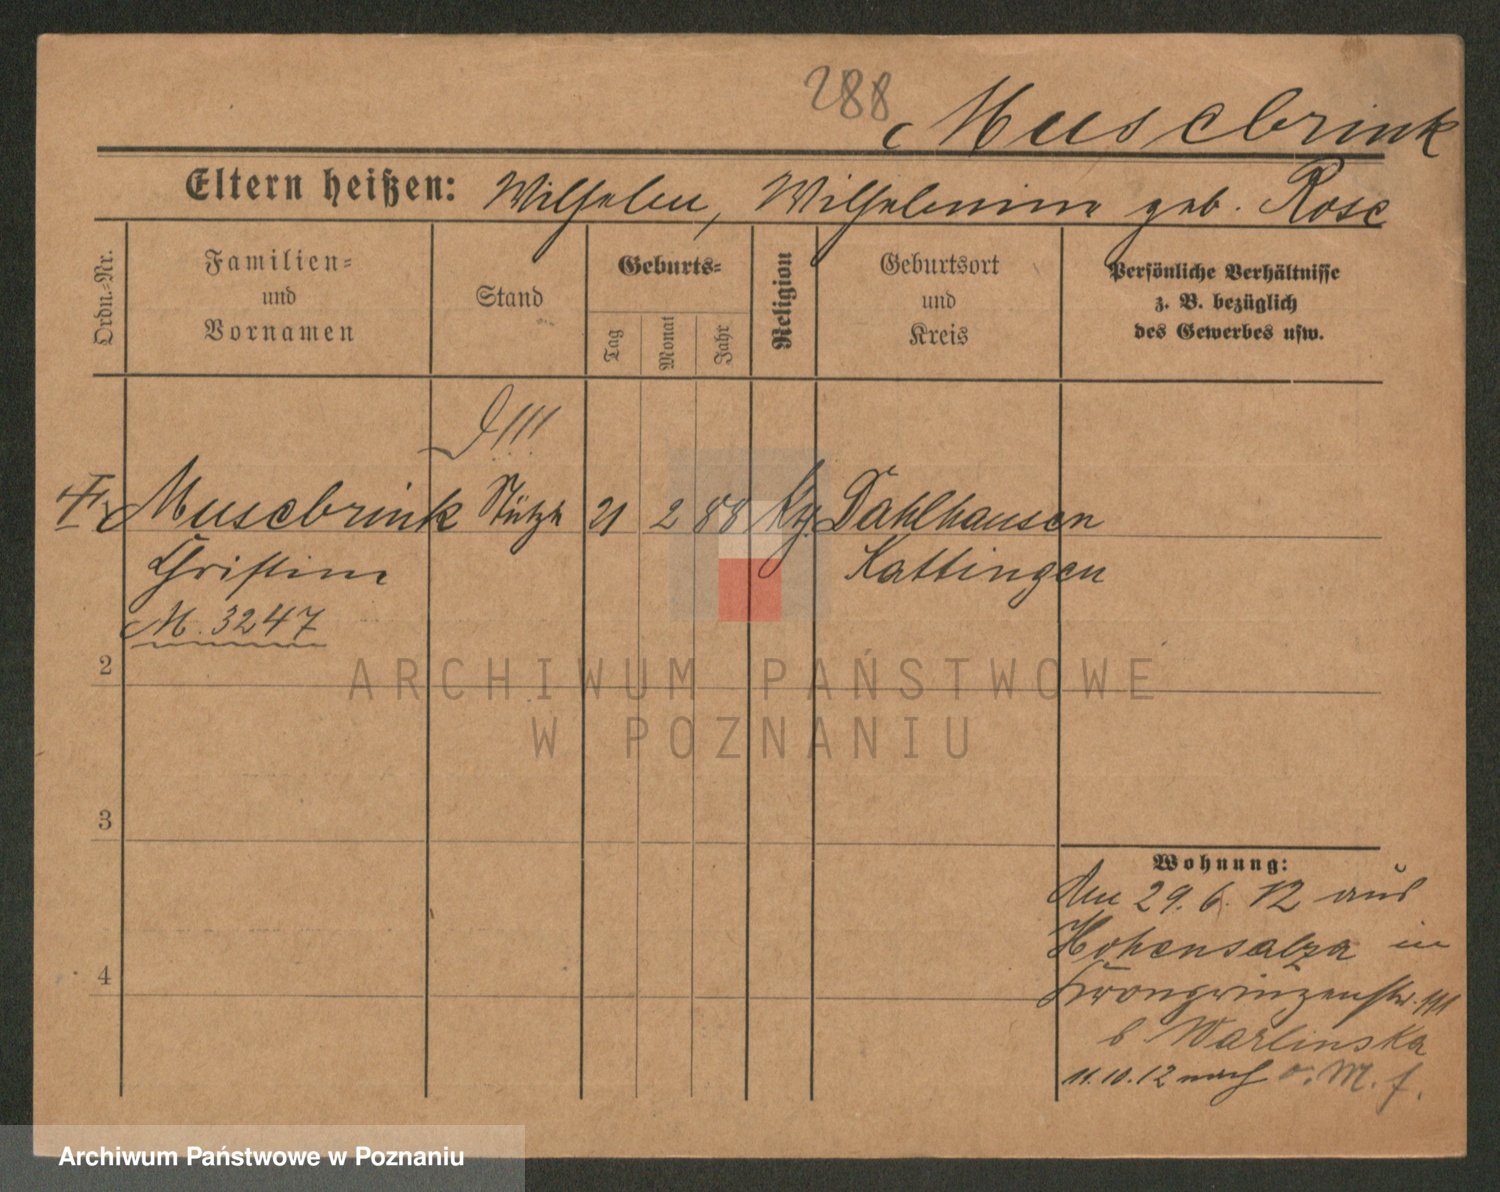 288 Muscbrink
Eltern heißen: Wilhelm, Wilhelmine geb. Rose
Ordn.-Nr.
Familien-
und
Vornamen
Stand
Geburts-
Tag
Monat
Jahr
Religion
Geburtsort
und
Kreis
Persönliche Verhältnisse
z. B. bezüglich
des Gewerbes usw.
Muscbrink Stütze 21 2 88 Dahlhausen
Christine Hattingen
M. 3247
2
3
4
Wohnung:
Am 29. 6. 12 aus
Hohensalza in
Kronprinzenstr.
b Warlinska
11.10.12 nach o. M. f.
ARCHIWUM PAŃSTWOWE
W POZNANIU
Archiwum Państwowe w Poznaniu